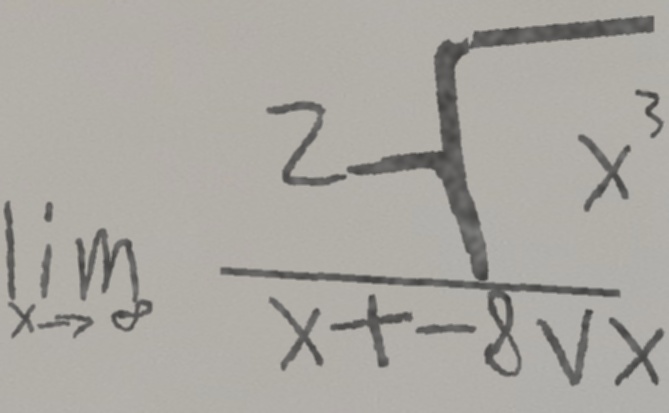 lim x→∞ 2-√x³
x+-8√x